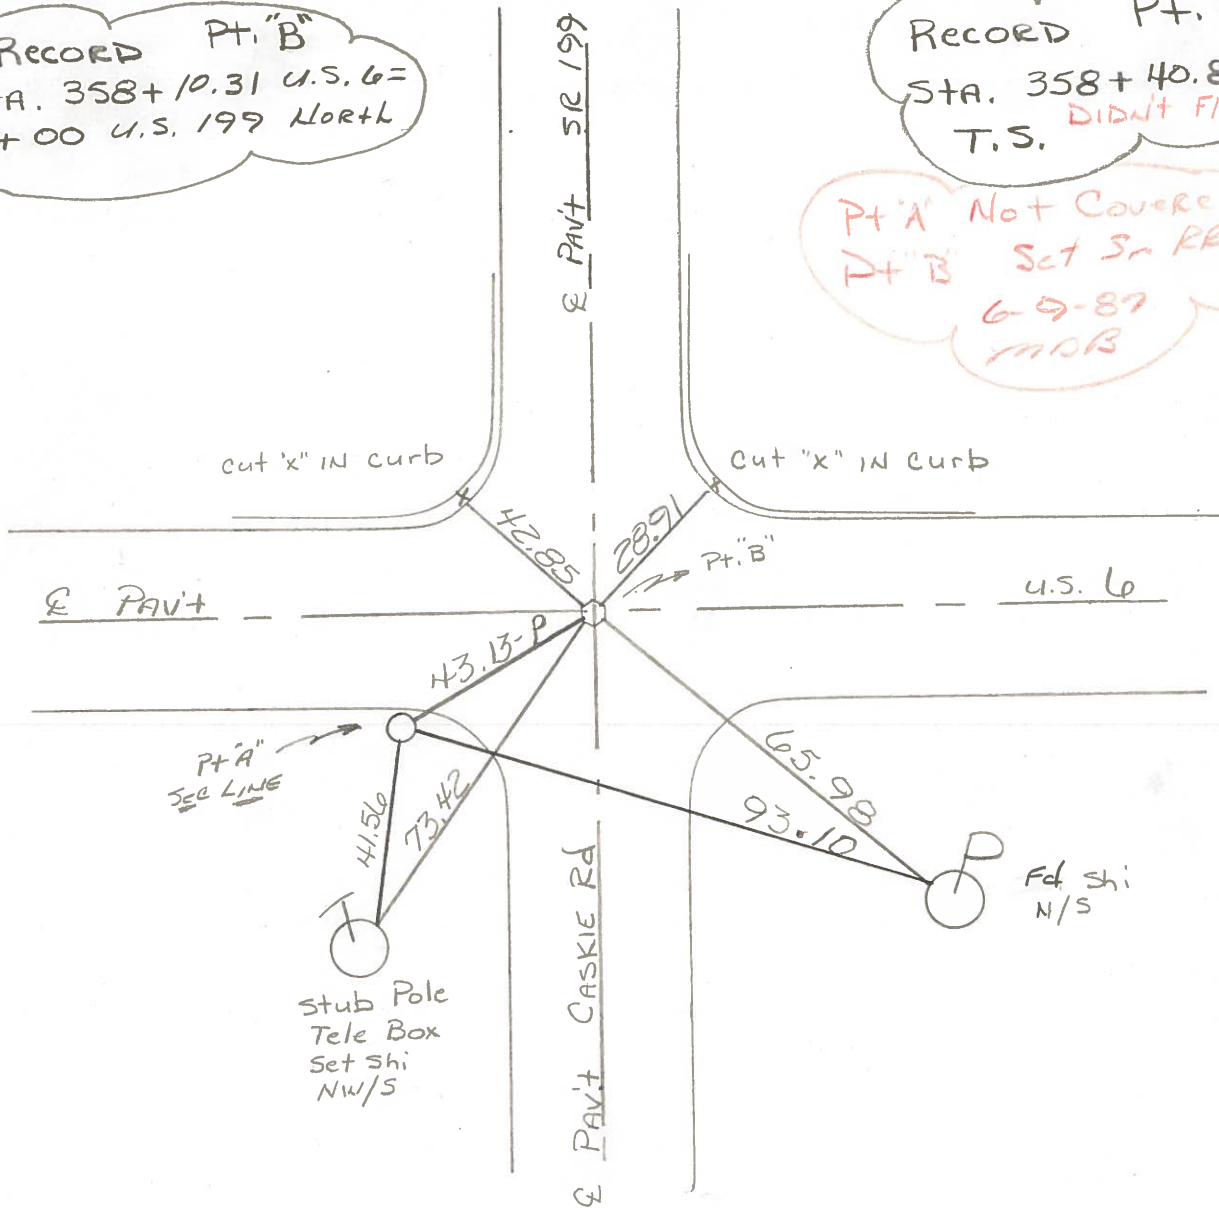 Record Pt. "B"
358+10.31 U.S. 6=
+00 U.S. 199 North
℄ PAV't SR 199
Record Pt.
StA. 358+40.8
DIDN't FI
T.S.
Pt "A" Not Covere
Pt "B" Set
6-9-87
MDB
Cut "x" IN Curb
Cut "x" IN Curb
42.85
28.91
Pt. "B"
℄ PAV't
U.S. 6
43.13-P
Pt "A"
SEC LINE
41.56
73.42
65.98
93.10
Fd. Shi
N/S
Stub Pole
Tele Box
Set Shi
NW/S
℄ PAV't CASKIE Rd